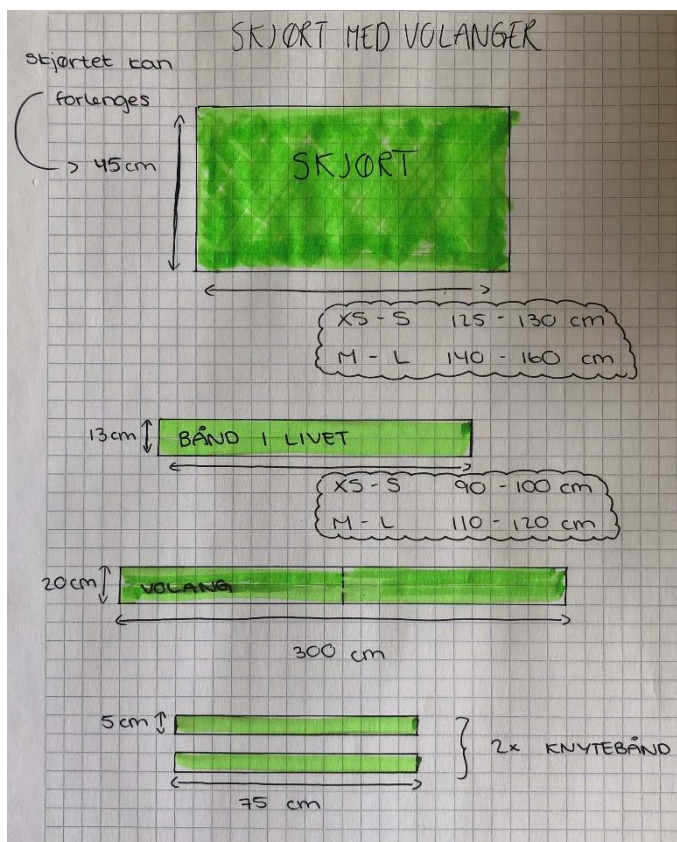 SKJØRT MED VOLANGER
skjørtet kan
forlenges
45cm
SKJØRT
XS - S 125 - 130 cm
M - L 140 - 160 cm
13cm
BÅND I LIVET
XS - S 90 - 100 cm
M - L 110 - 120 cm
20cm
VOLANG
300 cm
5cm
2x KNYTEBÅND
75 cm